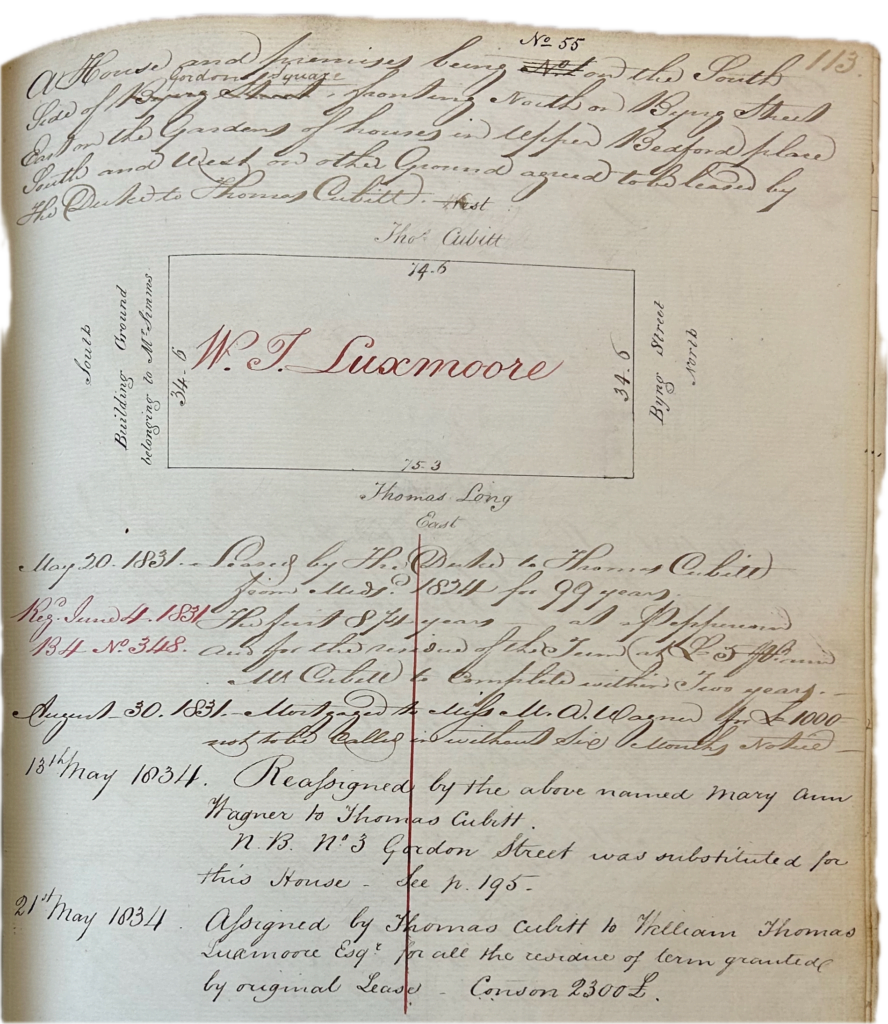 No 55
113.
A House and premises being No 1 on the South
Gordon Square
Side of Byng Street fronting North on Byng Street
East on the Gardens of houses in Upper Bedford place
South and West on other Ground agreed to be leased by
The Duke to Thomas Cubitt. West
Thos. Cubitt
74.6
South
Building Ground
belonging to Mr. Simms
34.6
W. T. Luxmoore
34.6
Byng Street
North
75.3
Thomas Long
East
May 20. 1831. Leased by The Duke to Thomas Cubitt
from Midsr. 1824 for 99 years.
Regd. June 4. 1831 The first years at a Peppercorn
B4 No. 348. and for the residue of the Term at £5
Mr Cubitt to complete within Two years.
August 30. 1831. Mortgaged to Miss M. A. Wagner for £1000
not to be Called in without Six Months Notice
13th May 1834. Reassigned by the above named Mary Ann
Wagner to Thomas Cubitt.
N.B. No 3 Gordon Street was substituted for
this House - See p. 195.
21st May 1834 Assigned by Thomas Cubitt to William Thomas
Luxmoore Esqr. for all the residue of term granted
by original Lease - Conson 2300£.